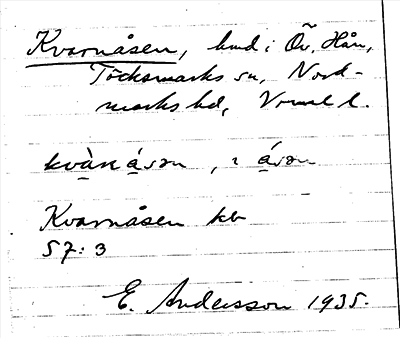 Kvarnåsen, hmd i Öv. Hån,
Töcksmarks sn, Nord-
marks hd, Vrml l.
kvàṇá̱sən, i á̱sən
Kvarnåsen kb
57:3
E. Andersson 1935.